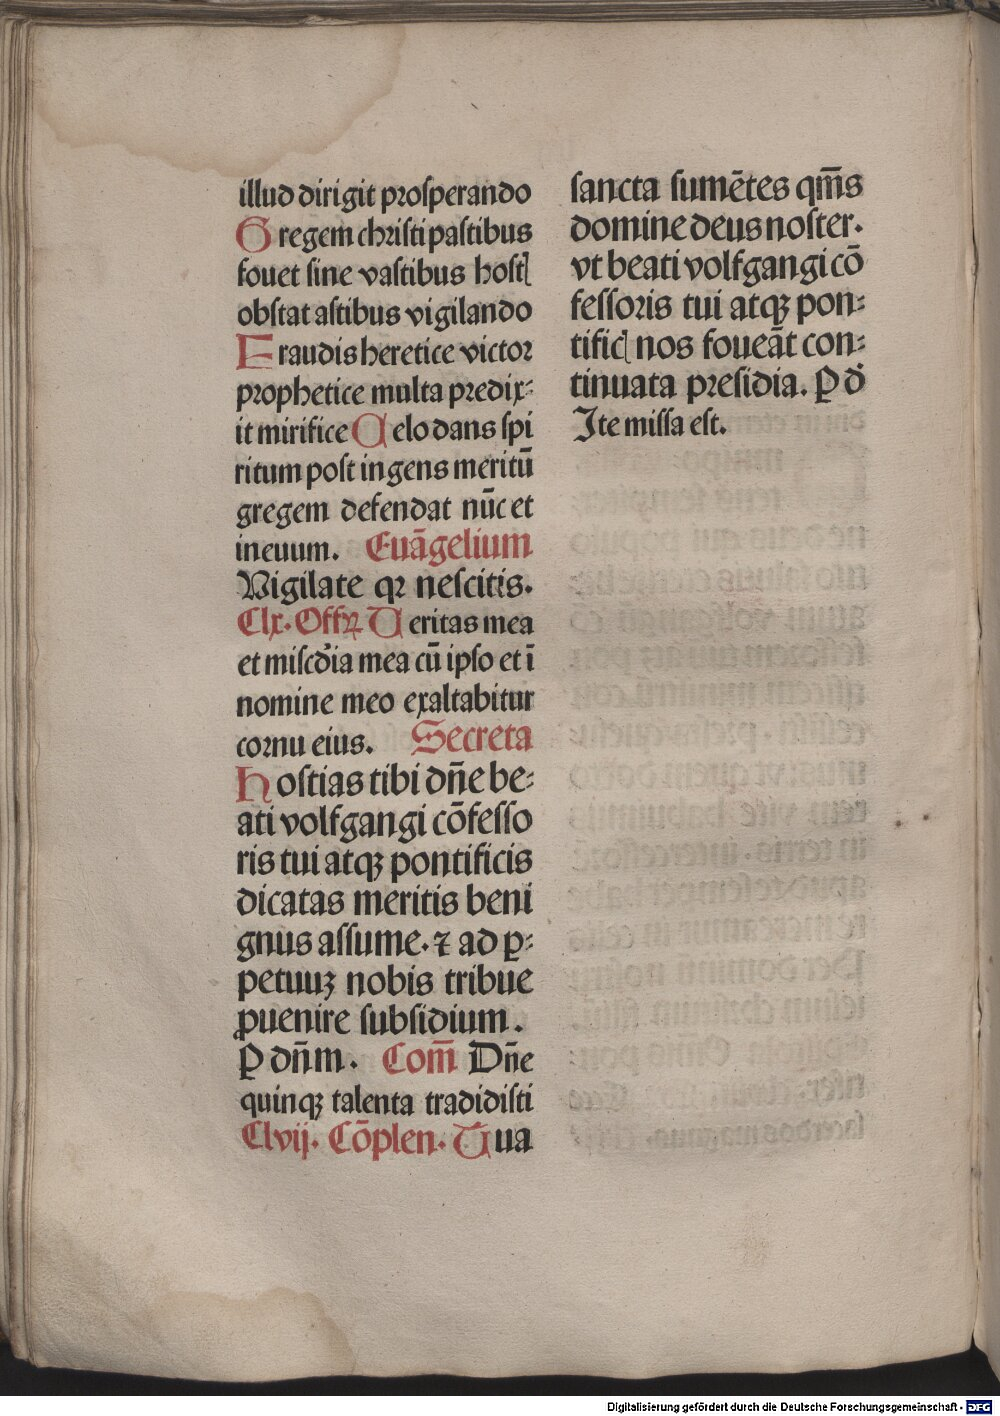 illud dirigit prosperando
Gregem christi pastibus
fouet sine vastibus hostꝭ
obstat astibus vigilando
Fraudis heretice victor
prophetice multa predix⸗
it mirifice Celo dans spi
ritum post ingens meritū
gregem defendat nūc et
ineuum. Euāgelium
Vigilate qꝛ nescitis.
Clx. Offꝝ Ueritas mea
et miscd̓ia mea cū ipso et ī
nomine meo exaltabitur
cornu eius. Secreta
Hostias tibi dn̄e be⸗
ati volfgangi cōfesso
ris tui atqꝫ pontificis
dicatas meritis beni
gnus assume. ⁊ ad ꝑ⸗
petuuꝫ nobis tribue
ꝓuenire subsidium.
P dn̄m. Com̄ Dn̄e
quinqꝫ talenta tradidisti
Clvij. Cōplen. Tua
sancta sumētes qm̄s
domine deus noster.
vt beati volfgangi cō
fessoris tui atqꝫ pon⸗
tificꝭ nos foueāt con⸗
tinuata presidia. P d̓
Ite missa est.
Digitalisierung gefördert durch die Deutsche Forschungsgemeinschaft - DFG